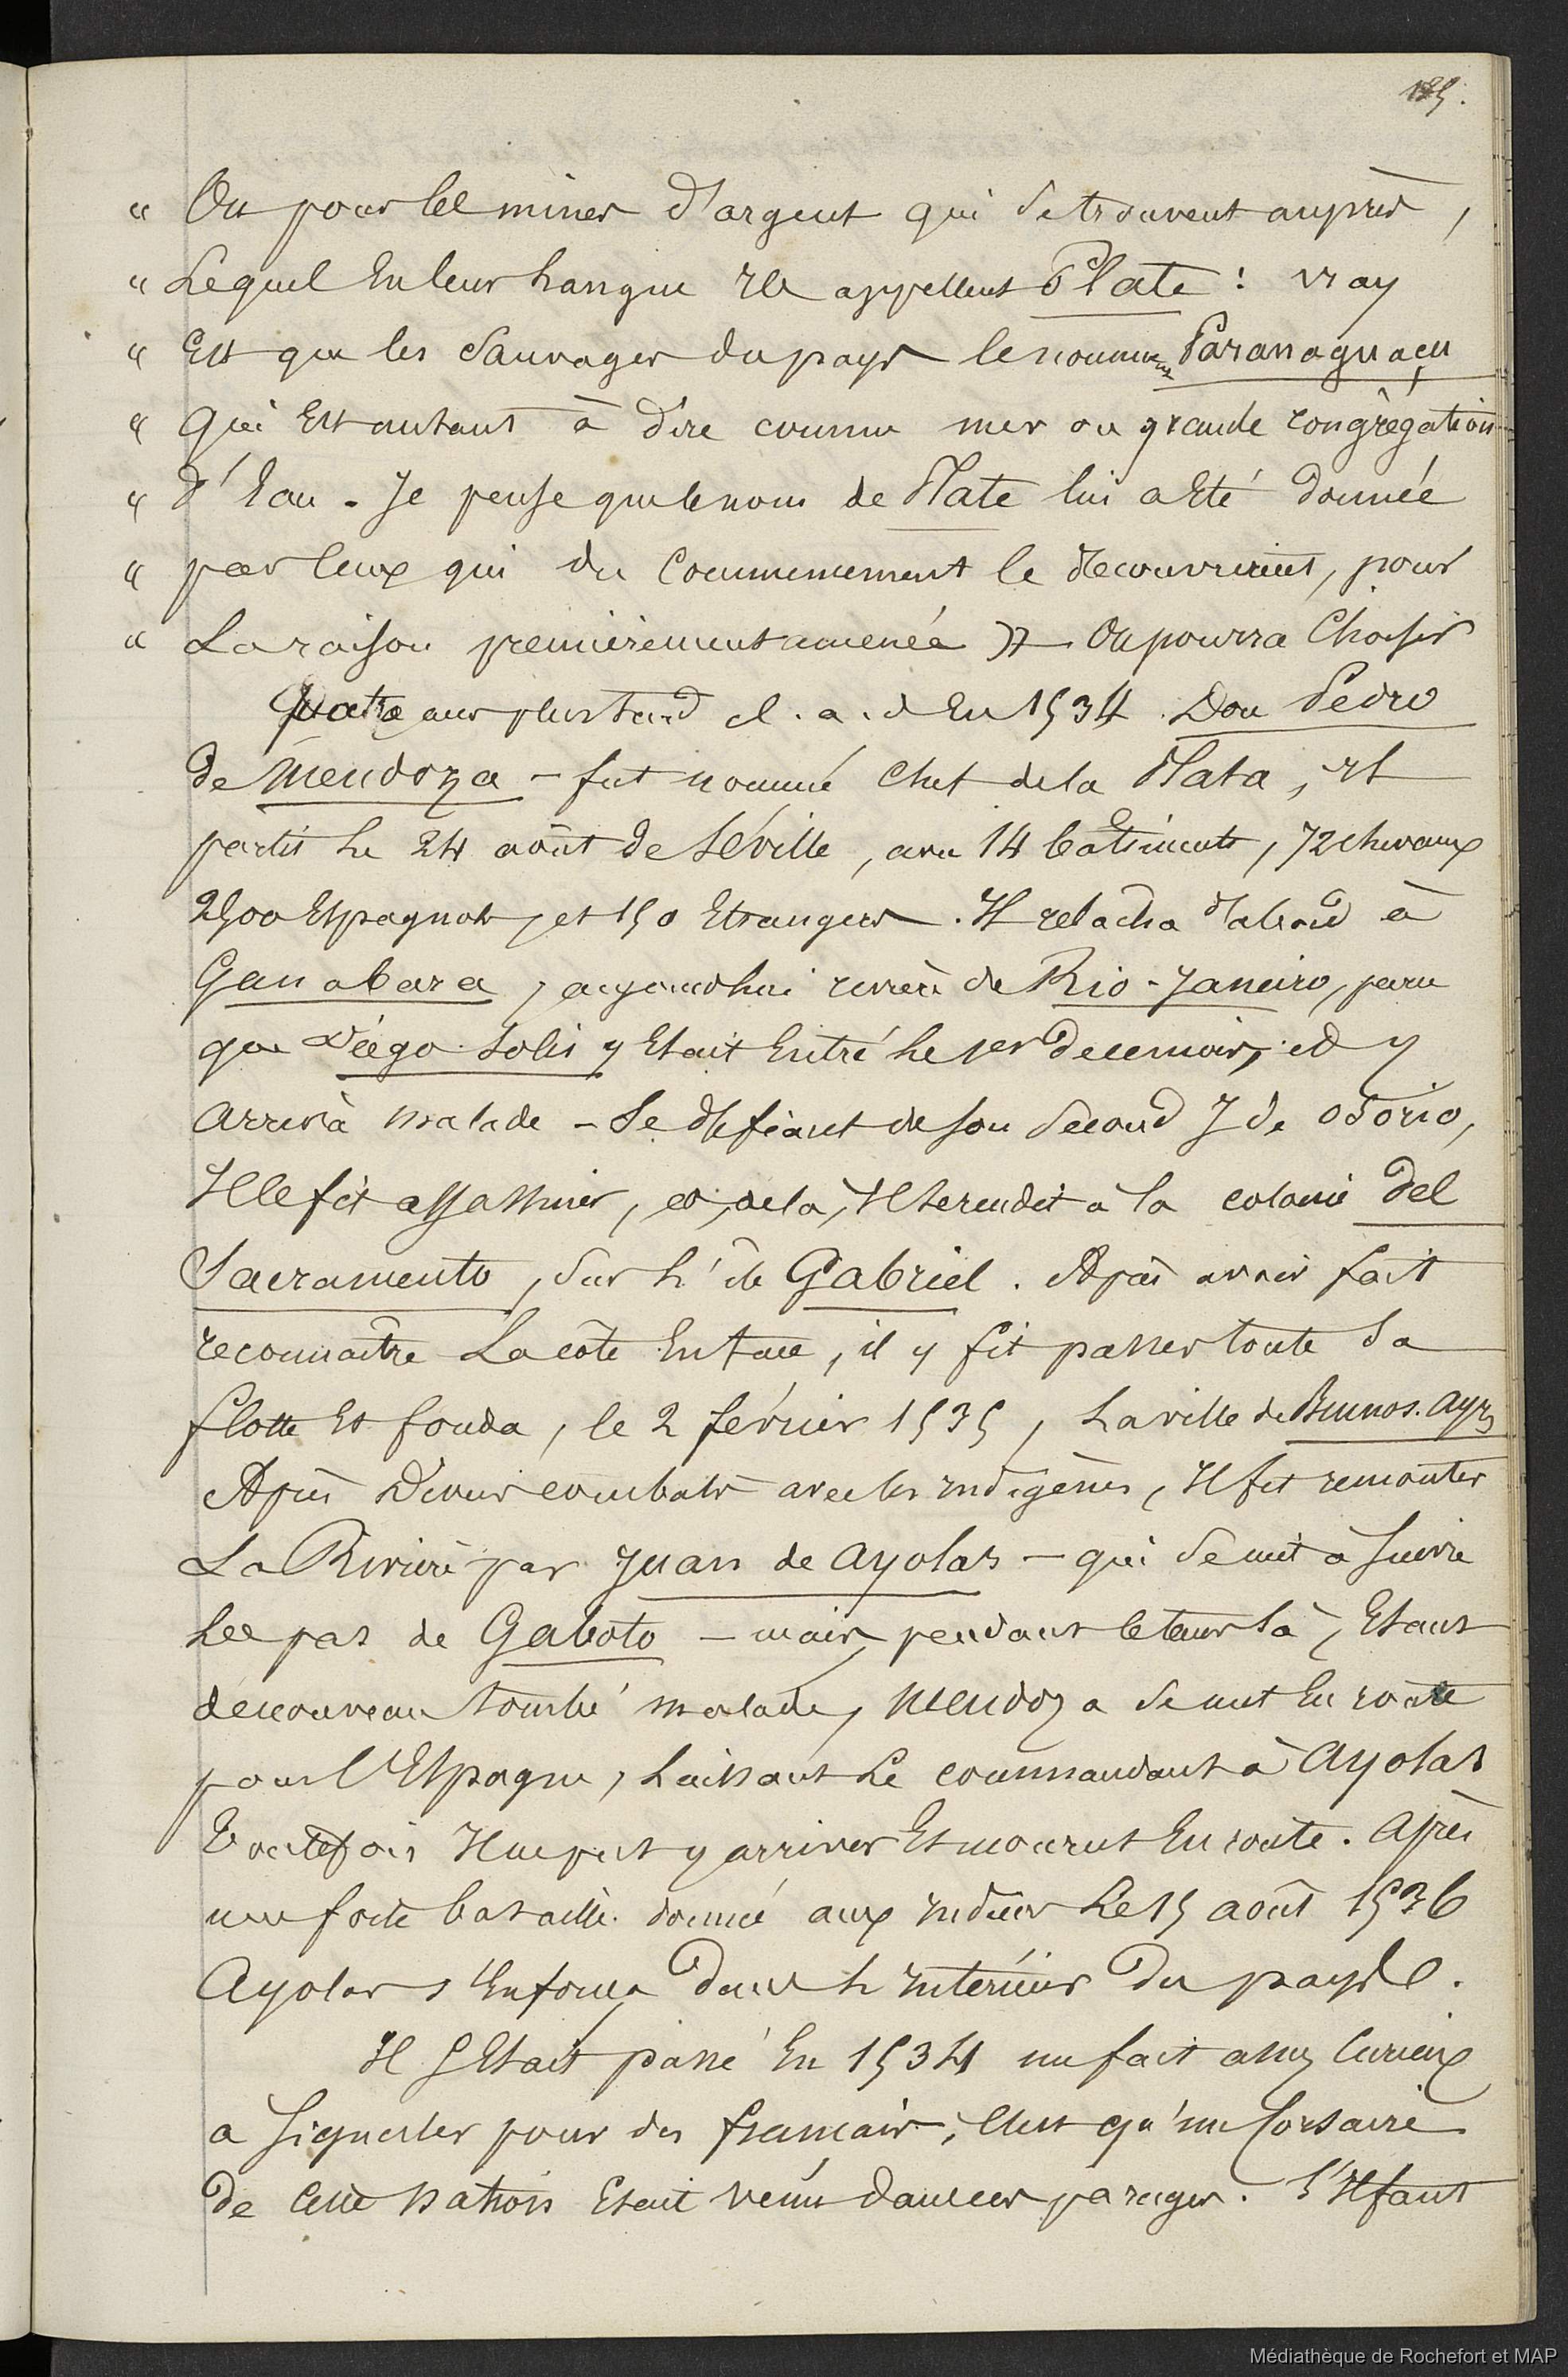 185.
" Ou pour les mines d'argent qui se trouvent auprès,
" Lequel En leur Langue Ils appellent Plate : vray
" Est que les Sauvages du pays le nomment Paranaguaçu
" Qui Est autant à dire comme mer ou grande congrégation
" d'Eau . Je pense que le nom de Plate lui a Eté donnée
" par Ceux qui du Commencement le decouvrirent, pour
" La raison premièrement amenée )) On pourra Choisir
Quatre ans plus tard c. a. d En 1534 . Don Pedro
de Mendoza – fut nommé Chef de la Plata , et
partit Le 24 août de Séville , avec 14 bâtiments , 72 chevaux
2500 Espagnols , et 150 Etrangers . Il relacha d'abord à
Ganabara , aujourdhui rivière de Rio-Janeiro, parce
que Diégo Solis y Etait Entré Le 1er de ce mois, et y
Arriva malade – Se défiant de son Second J de Osorio,
Il le fit assassiner, et, de là, Il se rendit à la colonie Del
Sacramento , Sur L'île Gabriel . Après avoir fait
reconnaître La côte En face , il y fit passer toute Sa
flotte Et fonda , le 2 février 1535 , La ville de Buenos. Ayres
Après Divers combats avec les indigènes , Il fit remonter
La Rivière par Juan de Ayolas – qui Se mit à Suivre
Les pas de Gaboto – mais, pendant le tems là , Etant
de nouveau tombé malade , Mendoza Se mit En route
pour l'Espagne , Laissant Le commandant à Ayolas
Toutefois Il ne put y arriver Et mourut En route . Après
une forte bataille donnée aux Indiens Le 15 août 1536
Ayolas s'Enfonça Dans L'intérieur Du pays.
Il S'Etait passé En 1534 un fait assez Curieux
a Signaler pour des français, C'est qu'un Corsaire
de Cette Nation Etait venu dans ces parages. S'Il faut
Médiathèque de Rochefort et MAP